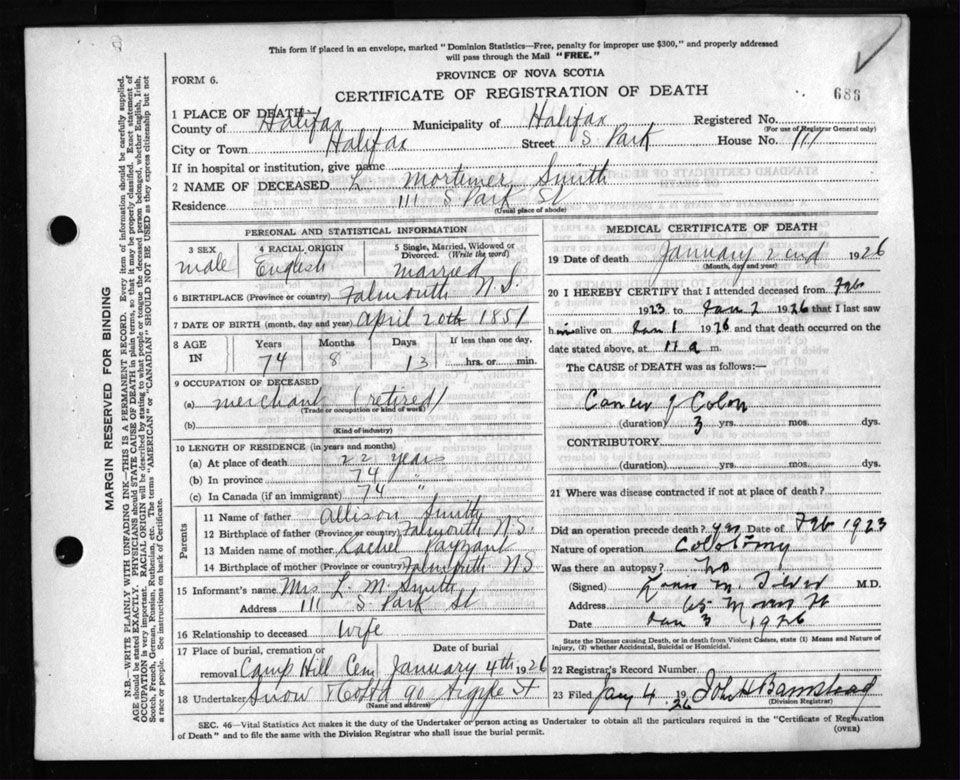 This form if placed in an envelope, marked "Dominion Statistics—Free, penalty for improper use $300," and properly addressed
will pass through the Mail "FREE."
FORM 6.
PROVINCE OF NOVA SCOTIA
CERTIFICATE OF REGISTRATION OF DEATH
686
1 PLACE OF DEATH
County of Halifax Municipality of Halifax Registered No.
(For use of Registrar General only)
City or Town Halifax Street S Park House No. 111
If in hospital or institution, give name
2 NAME OF DECEASED L. Mortimer Smith
Residence 111 S Park St
(Usual place of abode)
PERSONAL AND STATISTICAL INFORMATION
3 SEX
male
4 RACIAL ORIGIN
English
5 Single, Married, Widowed or
Divorced. (Write the word)
married
6 BIRTHPLACE (Province or country) Falmouth N.S.
7 DATE OF BIRTH (month, day and year) April 20th 1851
8 AGE IN
Years Months Days If less than one day,
74 8 13 hrs. or min.
9 OCCUPATION OF DECEASED
(a) merchant (retired)
(Trade or occupation or kind of work)
(b)
(Kind of industry)
10 LENGTH OF RESIDENCE (in years and months)
(a) At place of death 22 years
(b) In province 74 "
(c) In Canada (if an immigrant) 74 "
Parents
11 Name of father Allison Smith
12 Birthplace of father (Province or country) Falmouth N.S.
13 Maiden name of mother Rachel Payzant
14 Birthplace of mother (Province or country) Falmouth NS
15 Informant's name Mrs L. M. Smith
Address 111 S Park St
16 Relationship to deceased Wife
17 Place of burial, cremation or removal Date of burial
Camp Hill Cem January 4th 1926
18 Undertaker Snow & Co 90 Argyle St
(Name and address)
MEDICAL CERTIFICATE OF DEATH
19 Date of death January 2nd 1926
(Month, day and year)
20 I HEREBY CERTIFY that I attended deceased from Feb
1923 to Jan 2 1926 that I last saw
him alive on Jan 1 1926 and that death occurred on the
date stated above, at 11 a m.
The CAUSE of DEATH was as follows:—
Cancer of Colon
(duration) 3 yrs. mos. dys.
CONTRIBUTORY
(duration) yrs. mos. dys.
21 Where was disease contracted if not at place of death?
Did an operation precede death? yes Date of Feb 1923
Nature of operation Colostomy
Was there an autopsy? no
(Signed) Louis M. Silver M.D.
Address 65 Morris St
Jan 3 1926
State the Disease causing Death, or in death from Violent Causes, state (1) Means and Nature of
Injury, (2) whether Accidental, Suicidal or Homicidal.
22 Registrar's Record Number
23 Filed Jany 4 1926 John H Barnstead
(Division Registrar)
SEC. 46—Vital Statistics Act makes it the duty of the Undertaker or person acting as Undertaker to obtain all the particulars required in the "Certificate of Registration
of Death" and to file the same with the Division Registrar who shall issue the burial permit.
(OVER)
MARGIN RESERVED FOR BINDING
N.B.—WRITE PLAINLY WITH UNFADING INK—THIS IS A PERMANENT RECORD. Every item of information should be carefully supplied.
AGE should be stated EXACTLY. PHYSICIANS should STATE CAUSE OF DEATH in plain terms, so that it may be properly classified. Exact statement of
OCCUPATION is very important. RACIAL ORIGIN will be described by stating to what people or tongue the deceased person belonged, whether English, Irish,
Scotch, French, German, Russian, Ruthenian, etc. The terms "AMERICAN" or "CANADIAN" SHOULD NOT BE USED as they express citizenship but not
a race or people. See instructions on back of Certificate.